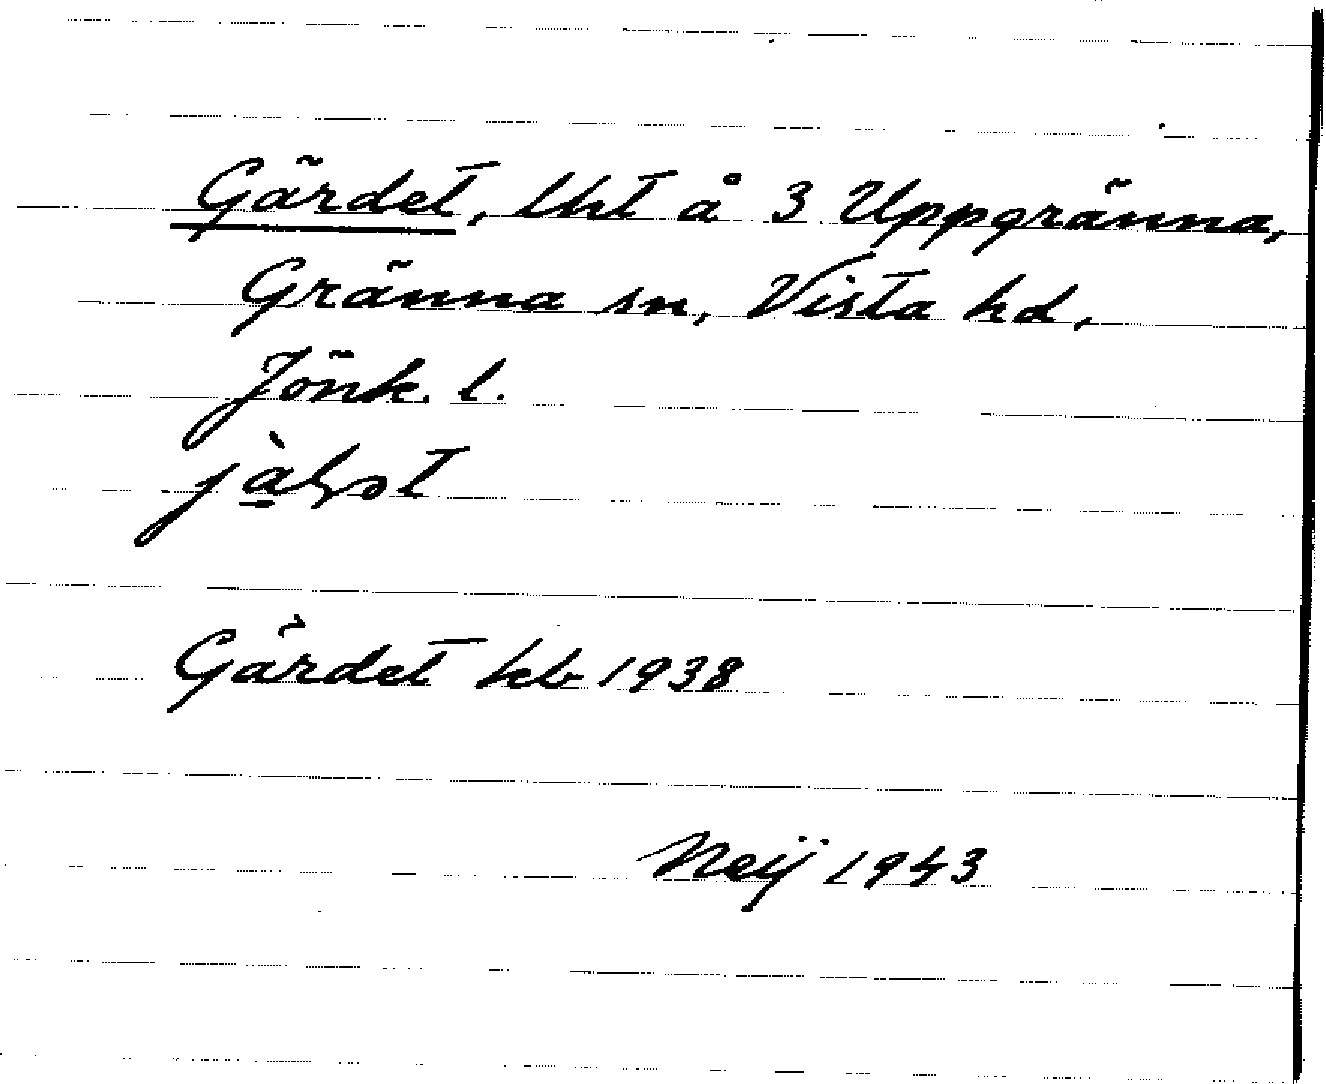 Gärdet, lht å 3 Uppgränna,
Gränna sn, Vista hd,
Jönk. l.
Gärdet kb 1938
Neij 1943